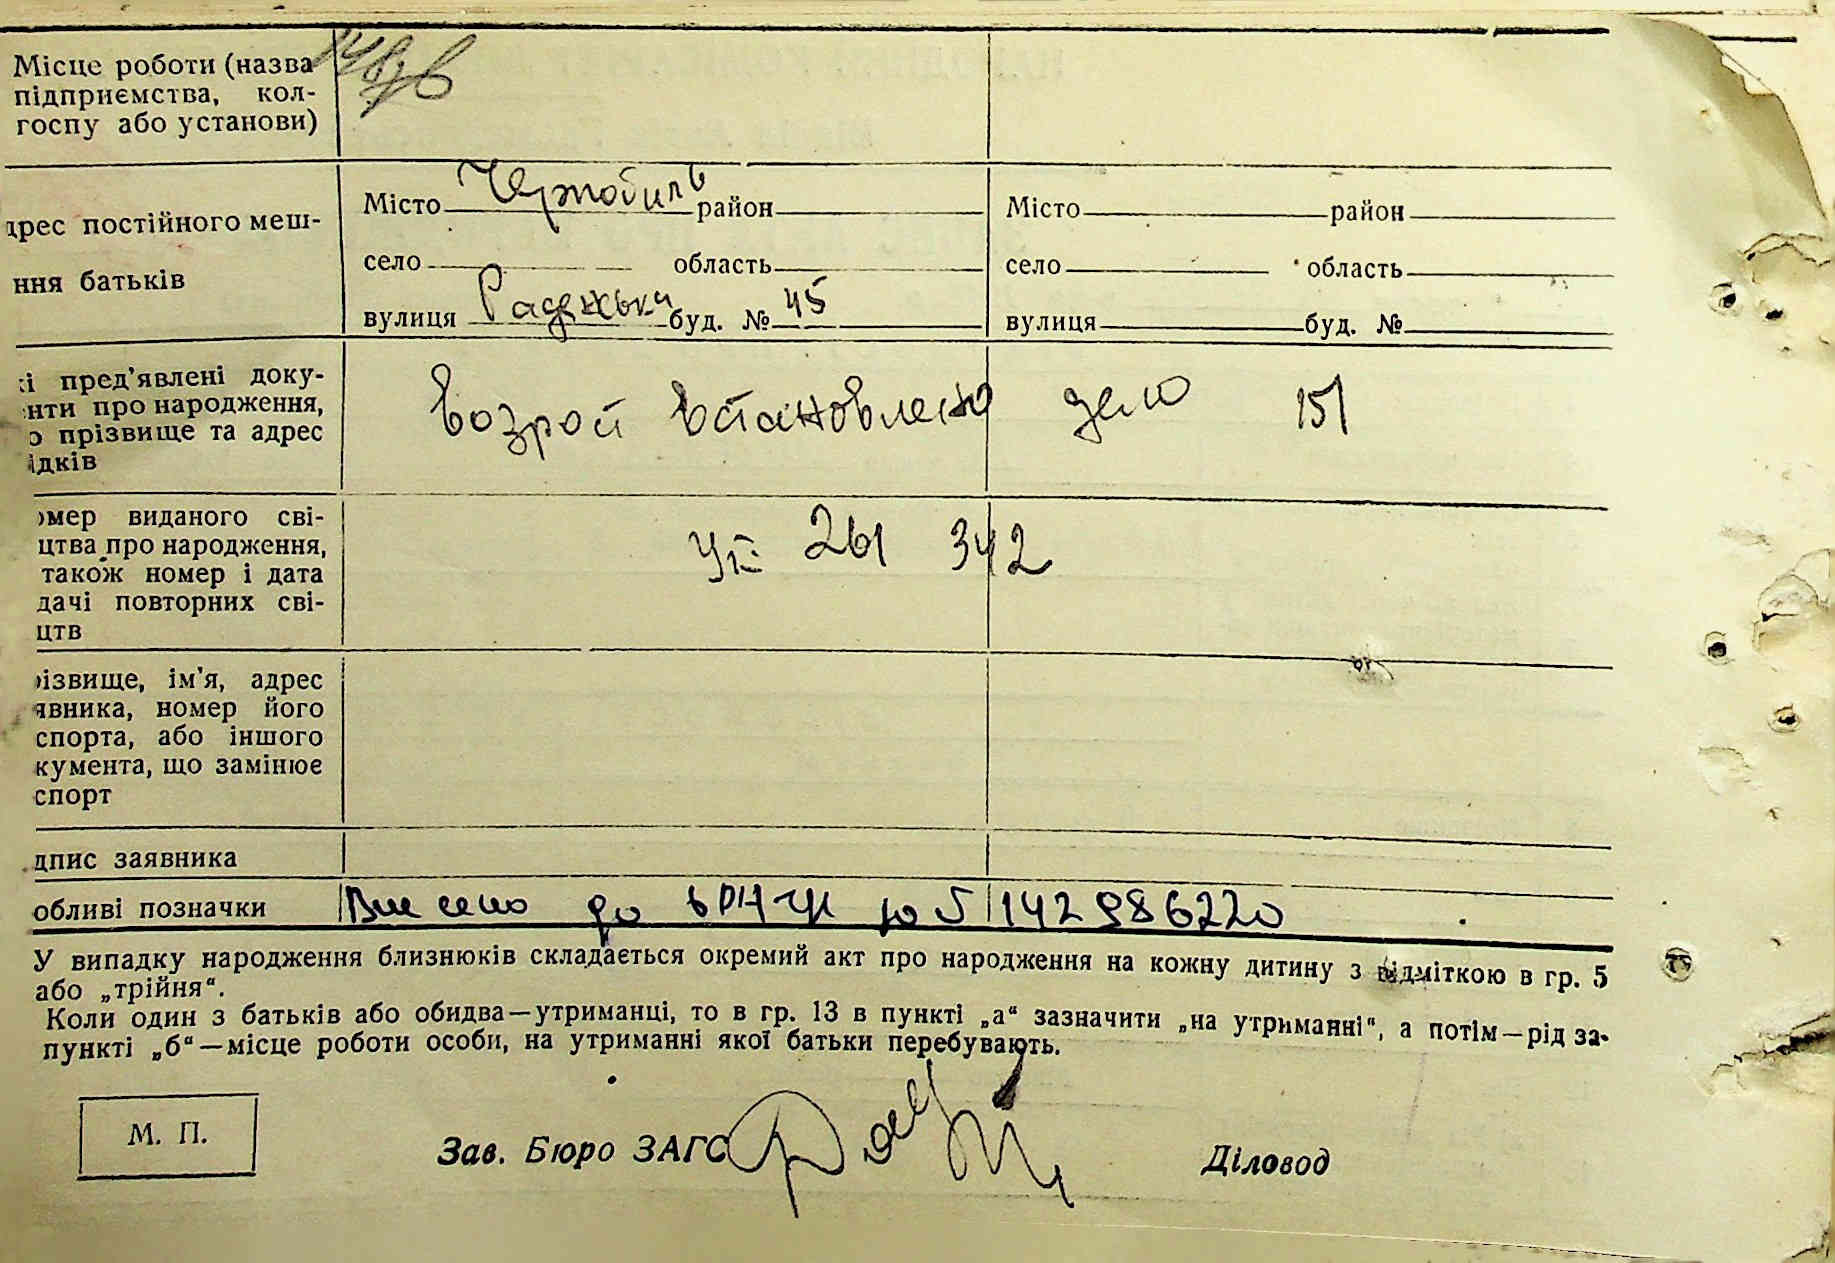 Місце роботи (назва
підприємства, кол-
госпу або установи)
дрес постійного меш-
ння батьків
Місто Чернобиль район
село область
вулиця Радянська буд. № 45
Місто район
село область
вулиця буд. №
і пред'явлені доку-
нти про народження,
о прізвище та адрес
ідків
возраст востановлено дело 151
омер виданого сві-
цтва про народження,
також номер і дата
дачі повторних сві-
цтв
261 342
різвище, ім'я, адрес
явника, номер його
спорта, або іншого
кумента, що замінює
спорт
дпис заявника
обливі позначки
Внесено до 142986220
У випадку народження близнюків складається окремий акт про народження на кожну дитину з відміткою в гр. 5
або „трійня“.
Коли один з батьків або обидва—утриманці, то в гр. 13 в пункті „а“ зазначити „на утриманні“, а потім—рід за-
пункті „б“—місце роботи особи, на утриманні якої батьки перебувають.
М. П.
Зав. Бюро ЗАГС
Діловод